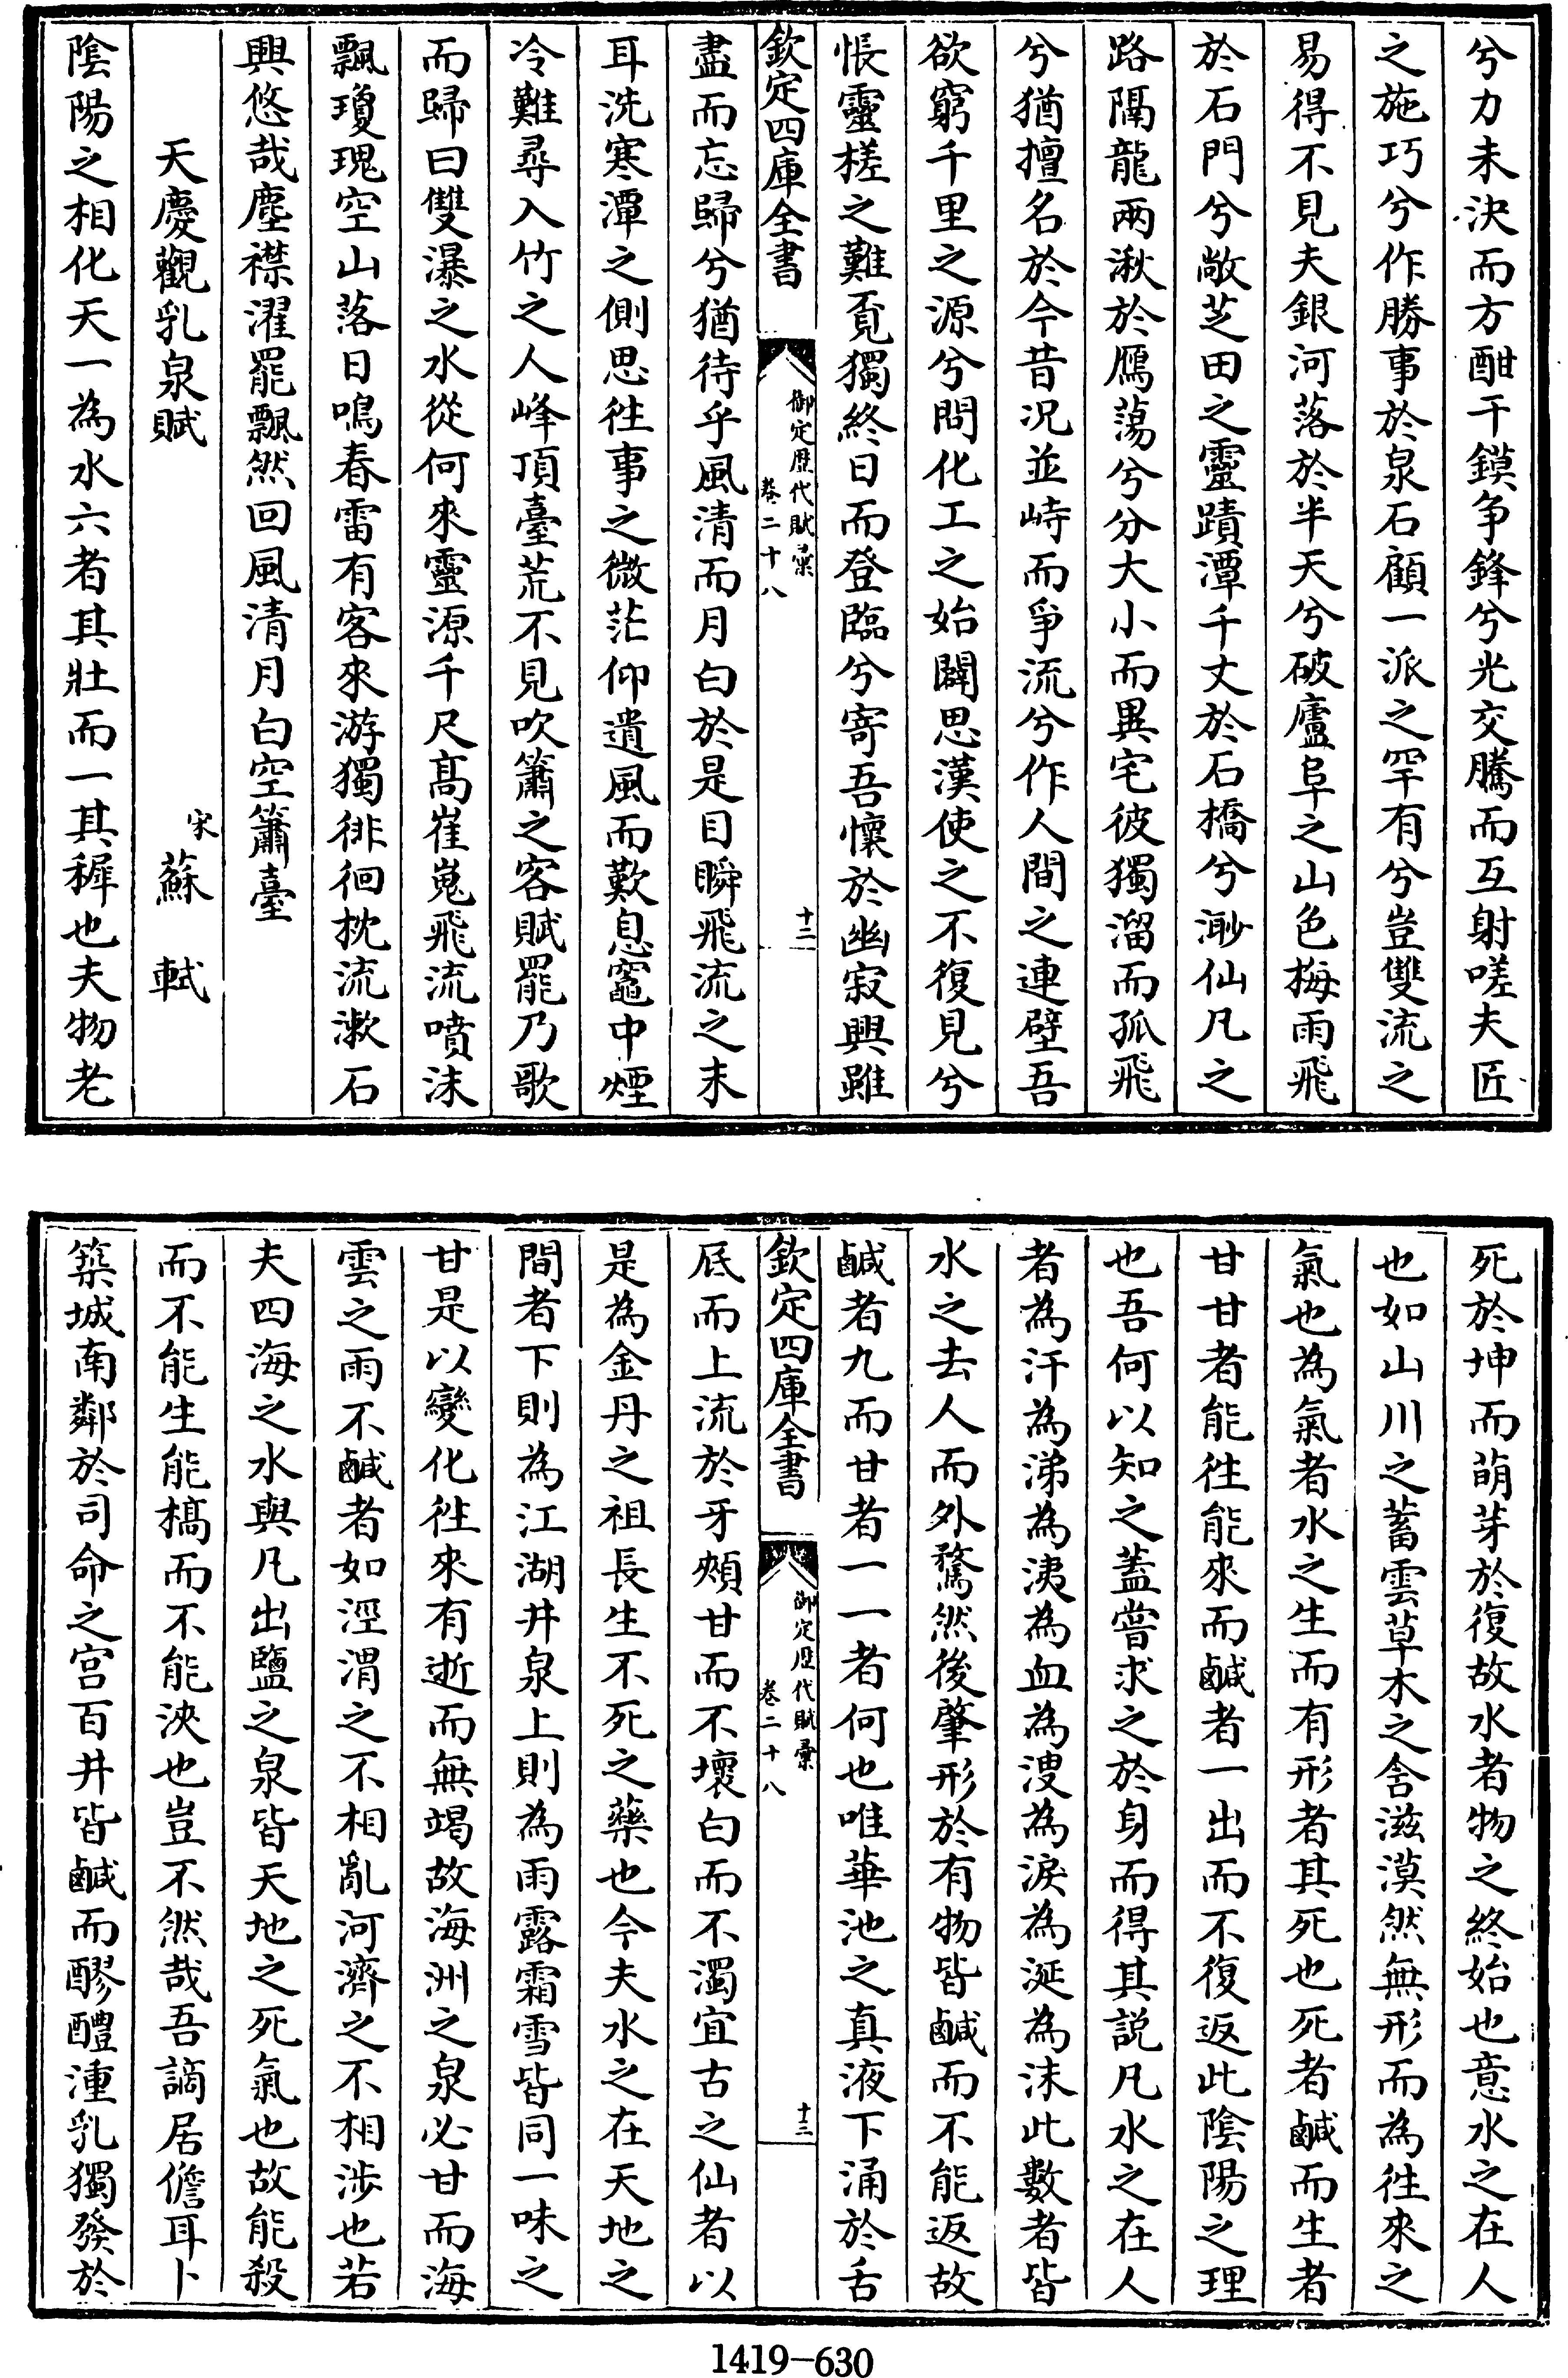 兮力未決而方酣干鏌争鋒兮光交騰而互射嗟夫匠
之施巧兮作勝事於泉石顧一派之罕有兮豈雙流之
易得不見夫銀河落於半天兮破廬阜之山色梅雨飛
於石門兮敞芝田之靈蹟潭千丈於石橋兮渺仙凡之
路隔龍兩湫於鴈蕩兮分大小而異宅彼獨溜而孤飛
兮猶擅名於今昔况並峙而爭流兮作人間之連壁吾
欲窮千里之源兮問化工之始闢思漢使之不復見兮
悵靈槎之難覔獨終日而登臨兮寄吾懷於幽寂興雖
欽定四庫全書
御定歴代賦彚
卷二十八
十二
盡而忘歸兮猶待乎風清而月白於是目瞬飛流之末
耳洗寒潭之側思徃事之微茫仰遺風而歎息竈中煙
冷難尋入竹之人峰頂臺荒不見吹簫之客賦罷乃歌
而歸曰雙瀑之水從何來靈源千尺髙崔嵬飛流噴沫
飄瓊瑰空山落日鳴春雷有客來游獨徘徊枕流漱石
興悠哉塵襟濯罷飄然回風清月白空簫臺
天慶觀乳泉賦
宋蘇軾
陰陽之相化天一為水六者其壯而一其穉也夫物老
死於坤而萌芽於復故水者物之終始也意水之在人
也如山川之蓄雲草木之含滋漠然無形而為徃來之
氣也為氣者水之生而有形者其死也死者鹹而生者
甘甘者能徃能來而鹹者一出而不復返此陰陽之理
也吾何以知之蓋嘗求之於身而得其説凡水之在人
者為汗為涕為洟為血為溲為淚為涎為沫此數者皆
水之去人而外騖然後肇形於有物皆鹹而不能返故
鹹者九而甘者一一者何也唯華池之真液下涌於舌
欽定四庫全書
御定歴代賦彚
卷二十八
十三
底而上流於牙頰甘而不壞白而不濁宜古之仙者以
是為金丹之祖長生不死之藥也今夫水之在天地之
間者下則為江湖井泉上則為雨露霜雪皆同一味之
甘是以變化徃來有逝而無竭故海洲之泉必甘而海
雲之雨不鹹者如涇渭之不相亂河濟之不相涉也若
夫四海之水與凡出鹽之泉皆天地之死氣也故能殺
而不能生能槁而不能浹也豈不然哉吾謫居儋耳卜
築城南鄰於司命之宫百井皆鹹而醪醴湩乳獨發於
1419-630